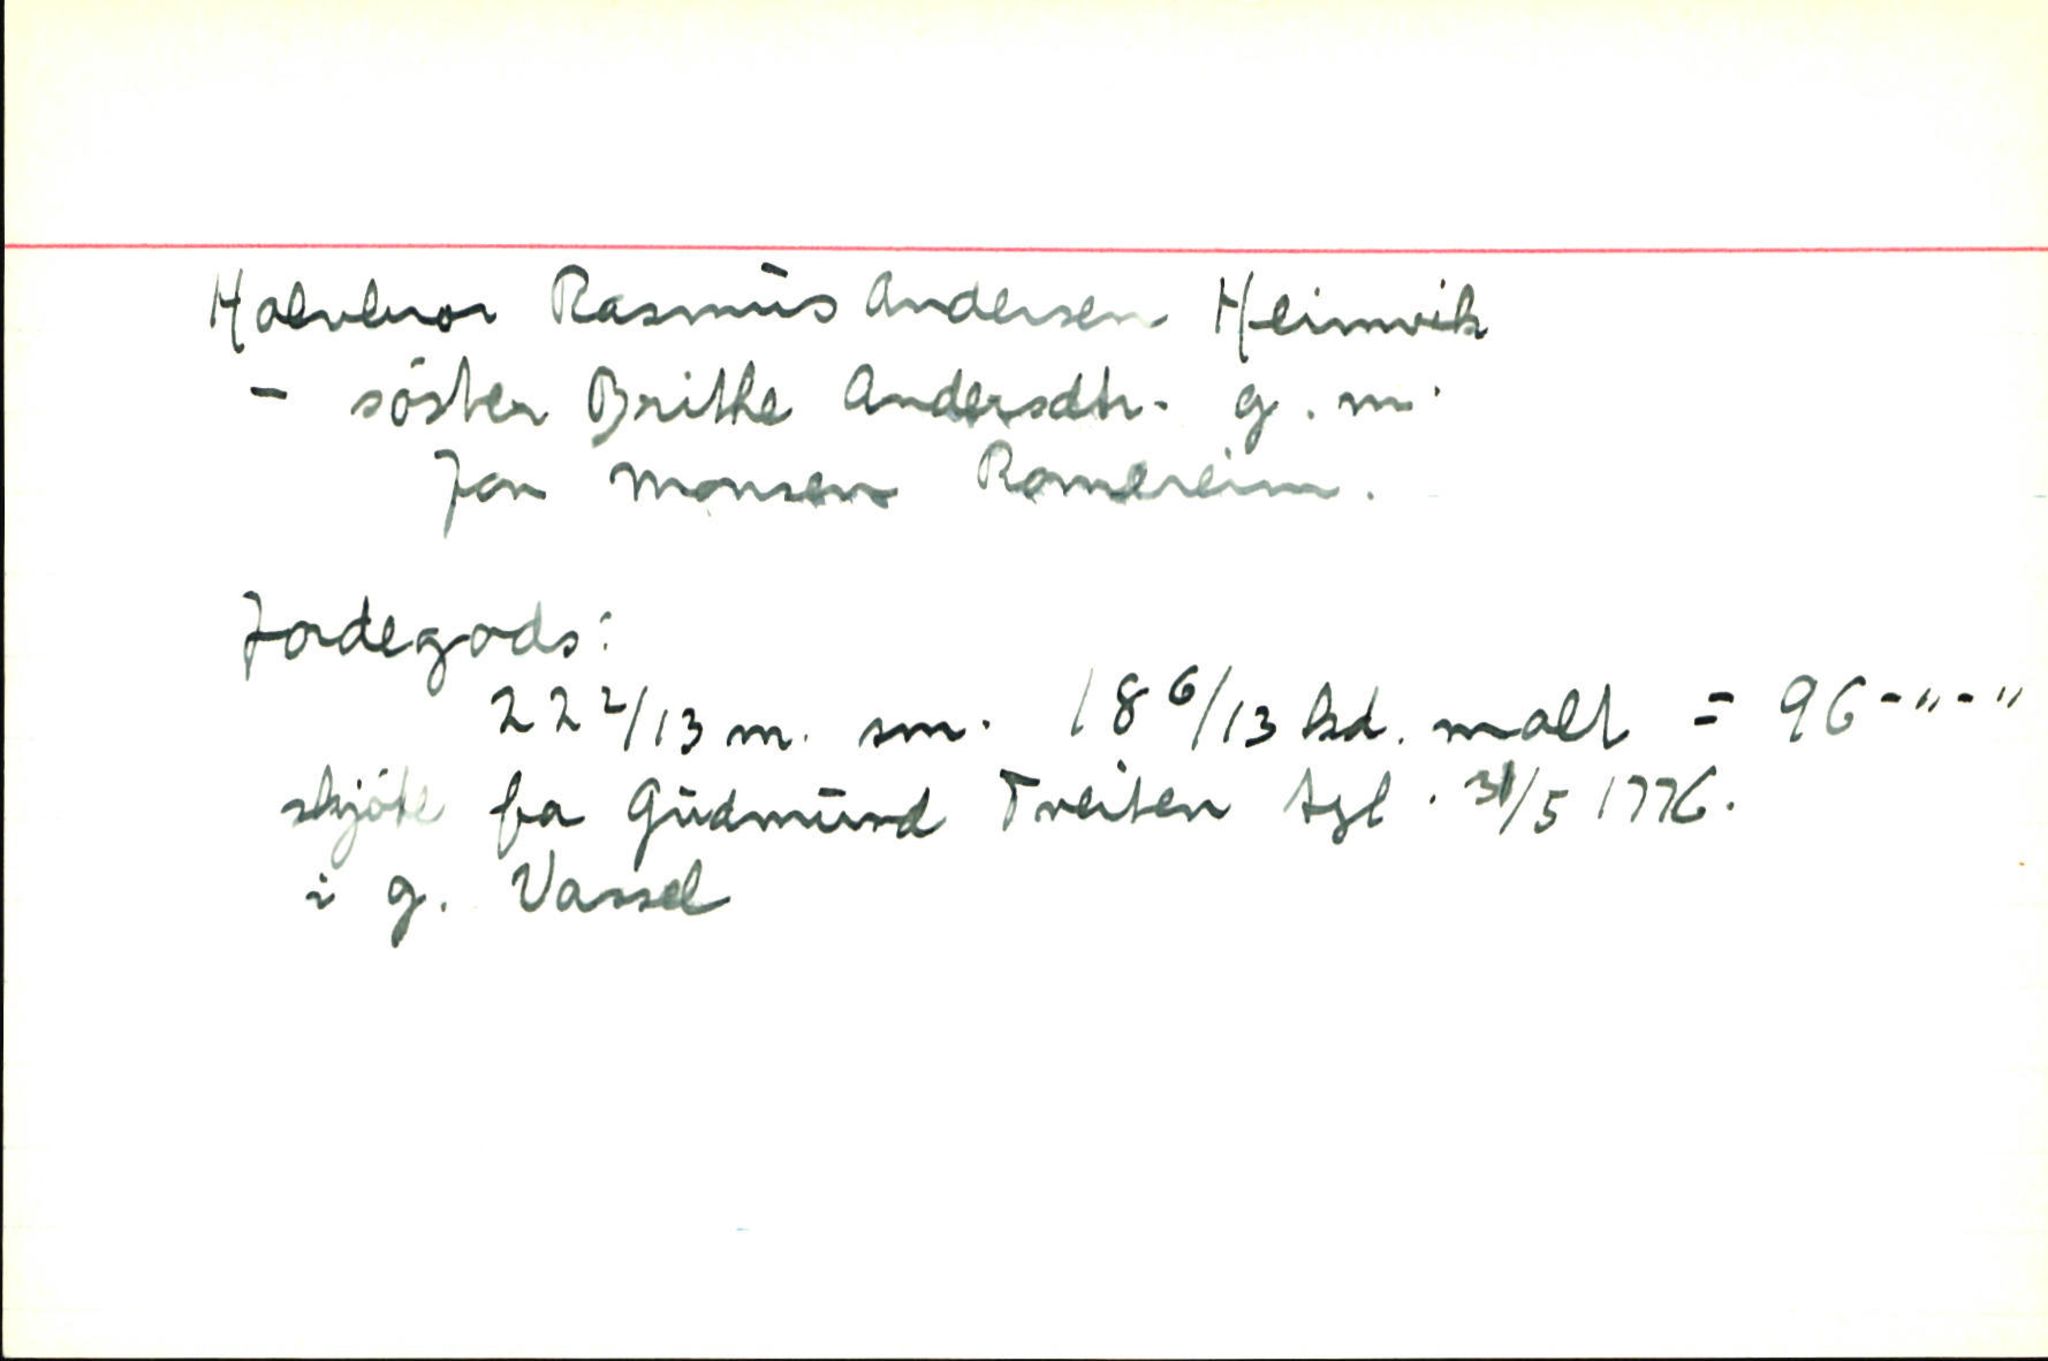 Halvbror Rasmus Andersen Heimvik
- söster Brithe Andersdtr. g. m.
Jon Monsen Romereim.
Jordegods:
22 2/13 m. sm. 18 6/13 kd. malt = 96-"-"
skjöte fra Gudmund Treiten tgl. 31/5 1776.
i g. Vassel